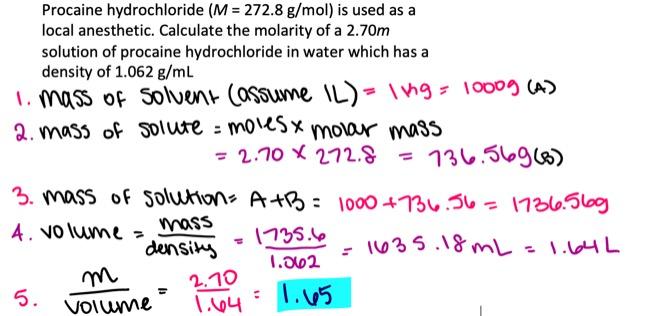 Procaine hydrochloride (M = 272.8 g/mol) is used as a
local anesthetic. Calculate the molarity of a 2.70m
solution of procaine hydrochloride in water which has a
density of 1.062 g/mL
1. mass of solvent (assume 1L) = 1kg = 1000g (A)
2. mass of solute = moles x molar mass
= 2.70 x 272.8 = 736.56g (B)
3. mass of solution = A+B = 1000 + 736.56 = 1736.56g
4. volume = mass / density = 1735.6 / 1.062 = 1635.18 mL = 1.64 L
5. m / volume = 2.70 / 1.64 = 1.65